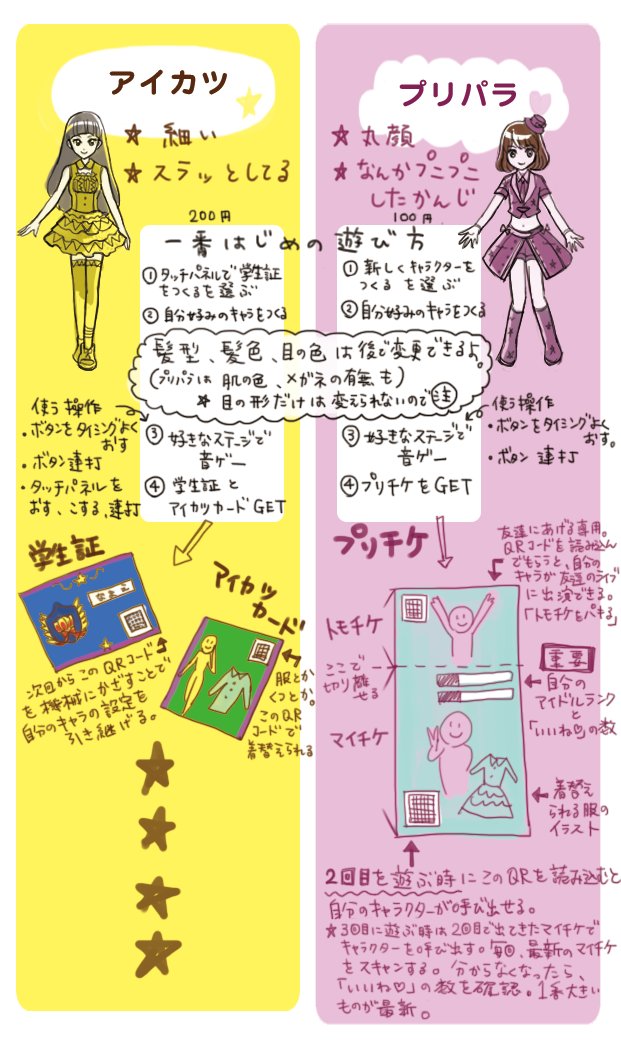 アイカツ
★ 細い
★ スラッとしてる
プリパラ
★ 丸顔
★ なんかプニプニ
したかんじ
200円
100円
一番はじめの遊び方
①タッチパネルで学生証
をつくるを選ぶ
②自分好みのキャラをつくる
① 新しくキャラクターを
つくる を選ぶ
②自分好みのキャラをつくる
髪型、髪色、目の色は後で変更できるよ。
(プリパラは 肌の色、メガネの有無も)
★ 目の形だけは変えられないので注
使う操作
・ボタンをタイミングよく
おす
・ボタン連打
・タッチパネルを
おす、こする、連打
③ 好きなステージで
音ゲー
④ 学生証と
アイカツカードGET
③ 好きなステージで
音ゲー
④プリチケをGET
使う操作
・ボタンをタイミングよく
おす。
・ボタン 連打
学生証
なまこ
次回からこのQRコード
を機械にかざすことで
自分のキャラの設定を
引き継げる。
アイカツ
カード
服とか
くつとか。
このQR
コードで
着替えられる
プリチケ
友達にあげる専用。
QRコードを読み込ん
でもらうと、自分の
キャラが友達のライブ
に出演できる。
「トモチケをパキる」
トモチケ
ここで
切り離せる
マイチケ
重要
自分の
アイドルランク
と
「いいね♡」の数
着替え
られる服の
イラスト
2回目を遊ぶ時にこのQRを読み込むと
自分のキャラクターが呼び出せる。
★3回目に遊ぶ時は2回目で出てきたマイチケで
キャラクターを呼び出す。毎回、最新のマイチケ
をスキャンする。分からなくなったら、
「いいね♡」の数を確認。1番大きい
ものが最新。